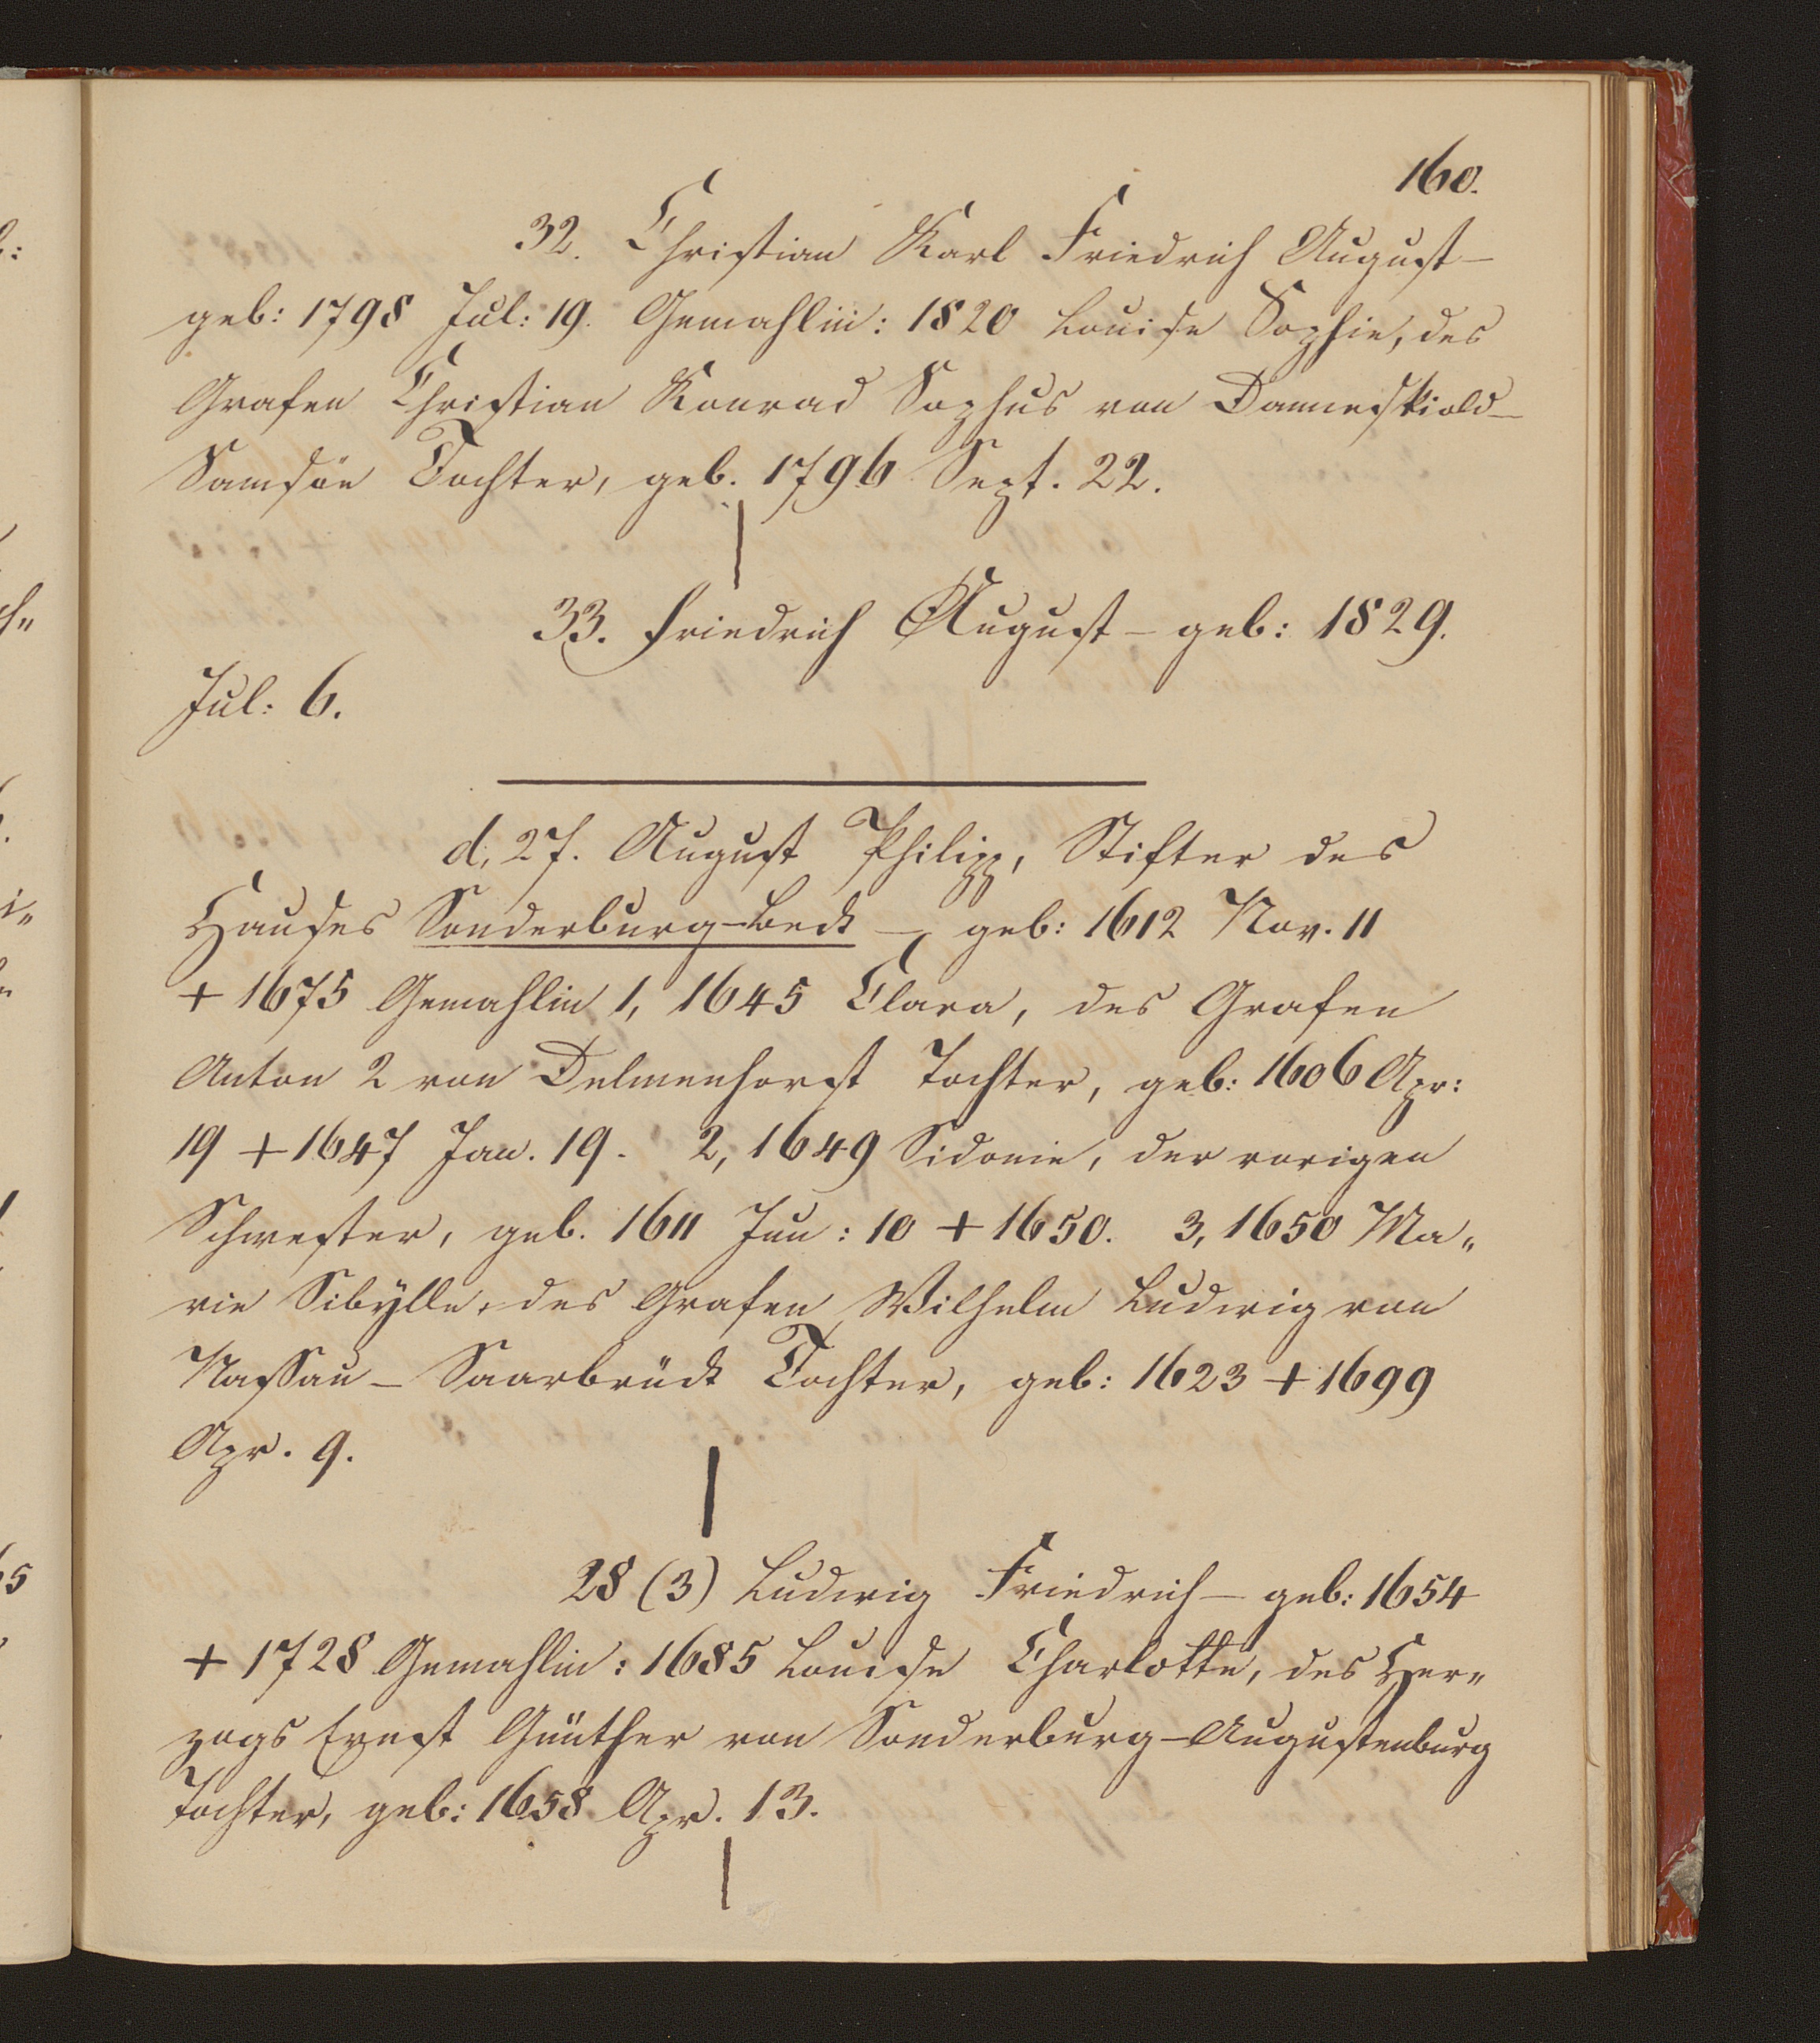 160.
32. Christian Karl Friedrich August –
geb: 1798 Jul: 19. Gemahlin: 1820 Louise Sophie, des
Grafen Christian Konrad Sophus von Danneskiold–
Samsöe Tochter, geb. 1796 Sept. 22.
33. Friedrich August – geb: 1829.
Jul: 6.
d, 27. August Philipp, Stifter des
Hauses Sonderburg–Beck – geb: 1612 Nov. 11
+ 1675 Gemahlin 1, 1645 Clara, des Grafen
Anton 2 von Delmenhorst Tochter, geb: 1606 Apr:
19 + 1647 Jan. 19. 2, 1649 Sidonie, der vorigen
Schwester, geb. 1611 Jun: 10 + 1650. 3, 1650 Ma„
rie Sibÿlle, des Grafen Wilhelm Ludwig von
Nassau – Saarbrück Tochter, geb: 1623 + 1699
Apr. 9.
28 (3) Ludwig Friedrich – geb: 1654
+ 1728 Gemahlin: 1685 Louise Charlotte, des Her„
zogs Ernst Günther von Sonderburg–Augustenburg
Tochter, geb: 1658 Apr. 13.